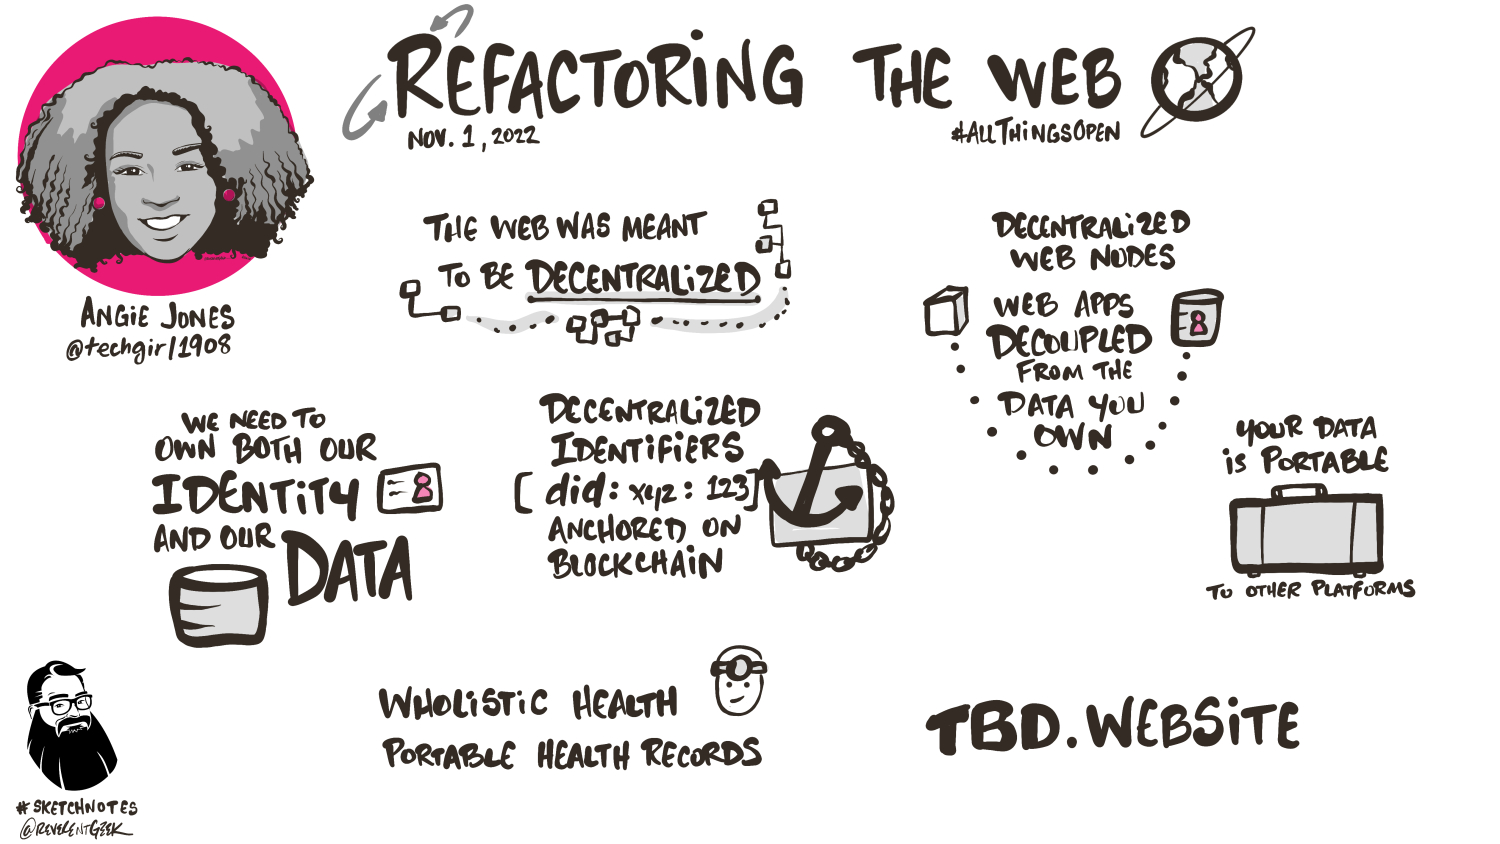 REFACTORING THE WEB
NOV. 1, 2022
#ALLTHINGSOPEN
ANGIE JONES
@techgirl1908
THE WEB WAS MEANT
TO BE DECENTRALIZED
DECENTRALIZED
WEB NODES
WEB APPS
DECOUPLED
FROM THE
DATA YOU
OWN
WE NEED TO
OWN BOTH OUR
IDENTITY
AND OUR
DATA
DECENTRALIZED
IDENTIFIERS
[did: xyz: 123]
ANCHORED ON
BLOCKCHAIN
YOUR DATA
IS PORTABLE
TO OTHER PLATFORMS
WHOLISTIC HEALTH
PORTABLE HEALTH RECORDS
TBD.WEBSITE
#SKETCHNOTES
@REVERENTGEEK